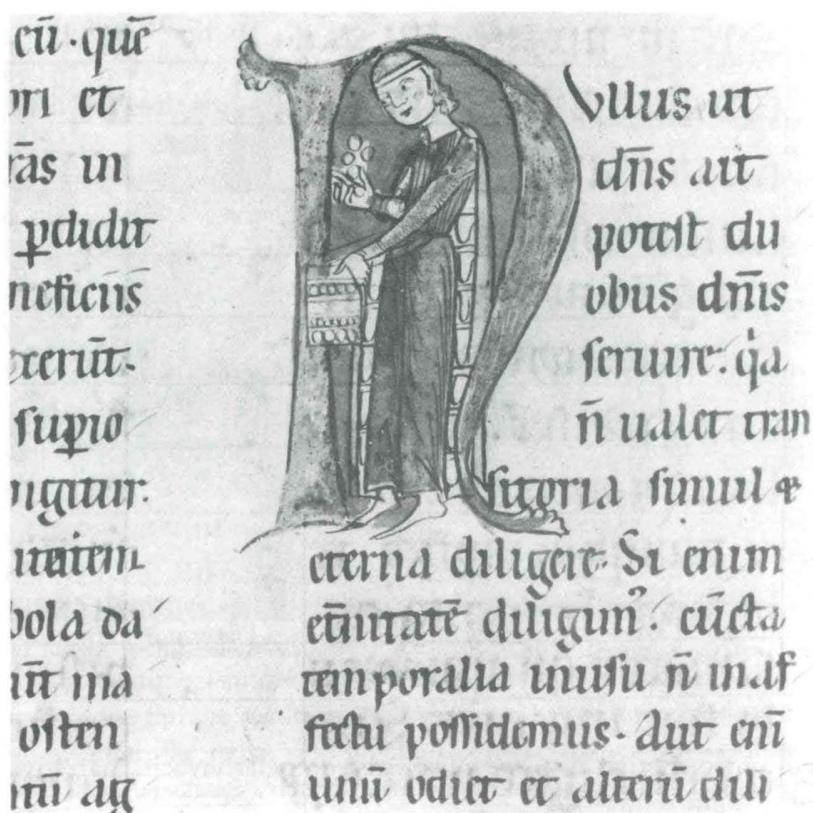 eū·quē
ori et
rās in
ꝑdidit
neficiis
xerūt·
ſuꝑio
nigitur·
itatem
bola da
ūt ma
oſten
ntū ag
NVllus ut
dn̄s ait
poteſt du
obus dn̄is
ſeruire: qͥa
n̄ ualet tran
ſitoria ſimul &
eterna diligere· Si enim
et̄nitatē diligimꝰ· cūcta
temporalia inuſu n̄ inaf
fectu poſſidemus· Aut enī
unū odiet et alterū dili